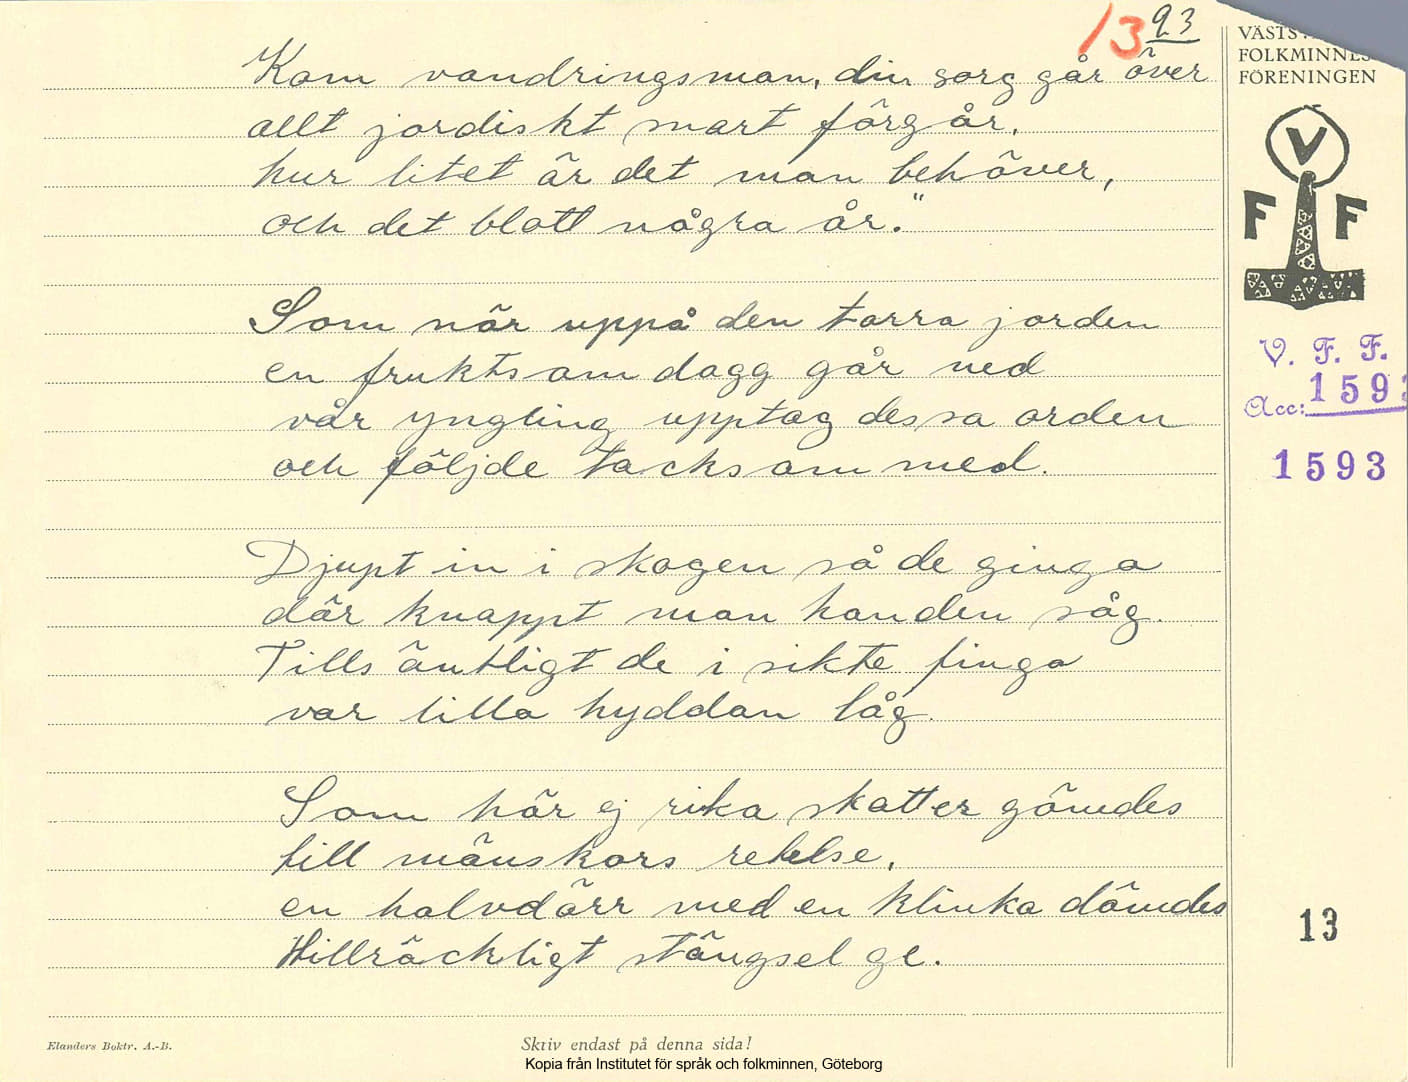 13 93
Kom vandringsman, din sorg går över
allt jordiskt snart förgår,
hur litet är det man behöver,
och det blott några år."
Som när uppå den torra jorden
en fruktsam dagg går ned
vår yngling upptog dessa orden
och följde tacksam med.
Djupt in i skogen så de ginga
där knappt man handen såg.
Tills äntligt de i sikte finga
var lilla hyddan låg.
Som här ej rika skatter gömdes
till mänskors retelse,
en halvdörr med en klinka dömdes
tillräckligt stängsel ge.
VÄSTS
FOLKMINNES
FÖRENINGEN
V
F F
V. F. F.
Acc: 1593
1593
13
Elanders Boktr. A.-B.
Skriv endast på denna sida!
Kopia från Institutet för språk och folkminnen, Göteborg